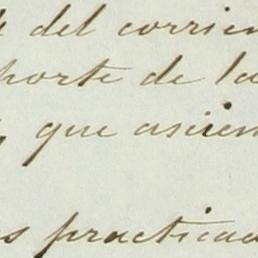 del corrien
porte de la
que ascien
s practicad